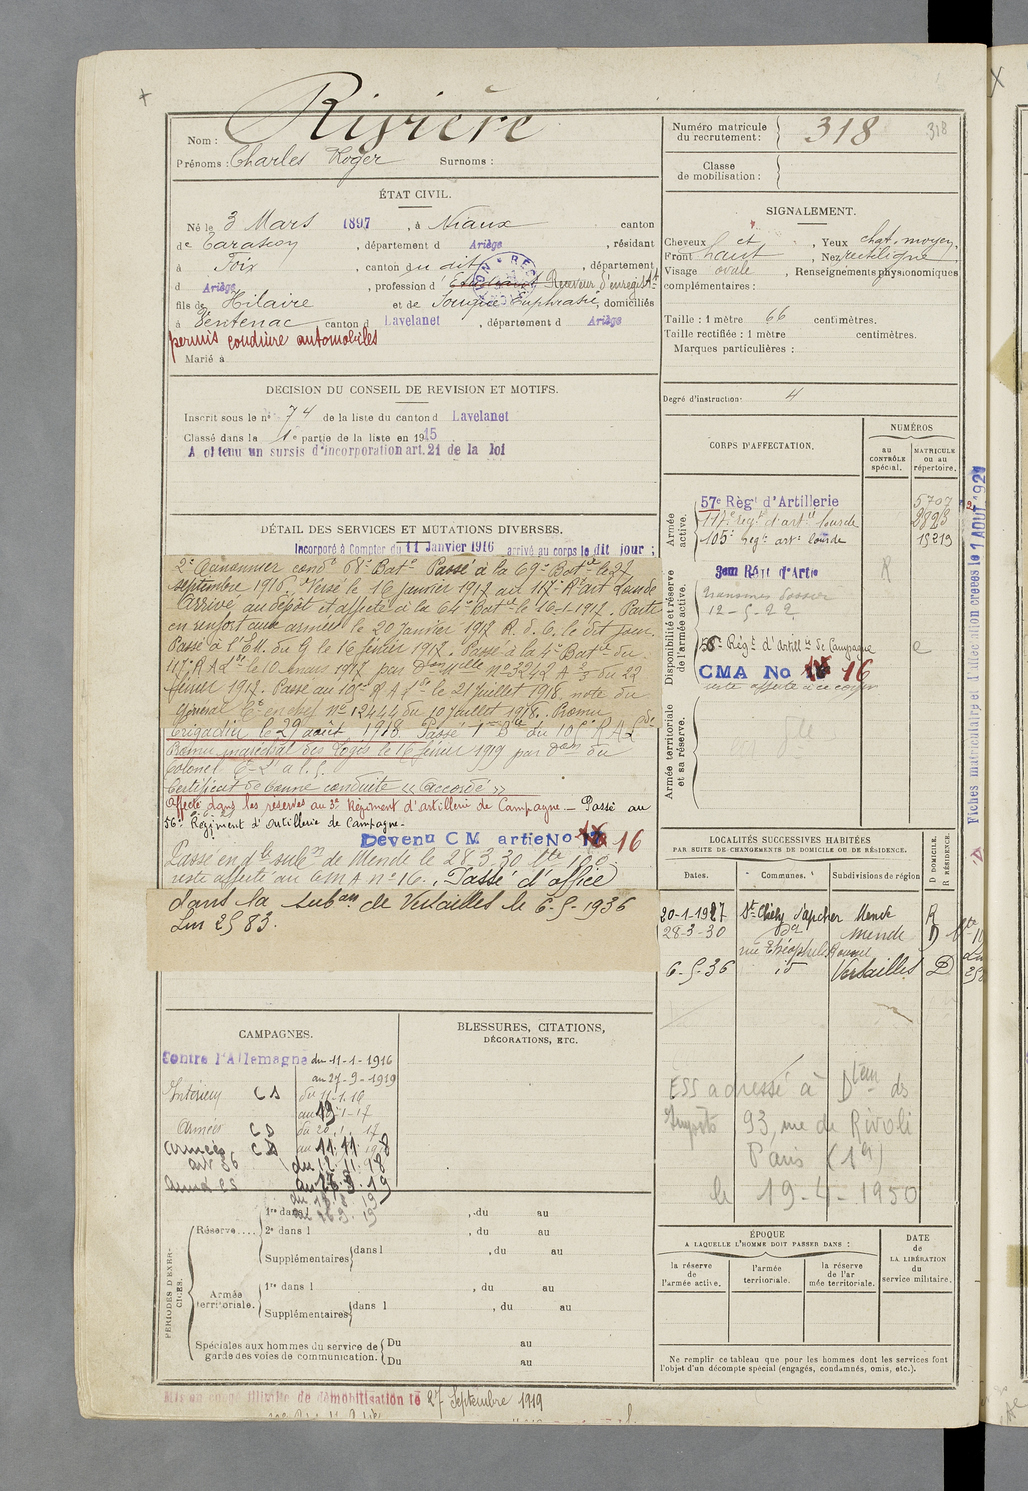 Rivière
Nom :
Prénoms : Charles Roger Surnoms :
Numéro matricule du recrutement : 318 318
Classe de mobilisation :
ÉTAT CIVIL.
Né le 3 Mars 1897, à Niaux canton
de Tarascon, département d Ariège, résidant
à Foix, canton du dit, département
d Ariège, profession d' Receveur d'enregist.t
fils de Hilaire et de Euphrasie, domiciliés
à Ventenac canton d Lavelanet, département d Ariège
permis conduire automobiles
Marié à
SIGNALEMENT.
Cheveux ct, Yeux chat. moyen.
Front haut, Nez rectiligne
Visage ovale, Renseignements physionomiques
complémentaires :
Taille : 1 mètre 66 centimètres.
Taille rectifiée : 1 mètre centimètres.
Marques particulières :
Degré d'instruction : 4
DÉCISION DU CONSEIL DE REVISION ET MOTIFS.
Inscrit sous le n° 74 de la liste du canton d Lavelanet
Classé dans la 1e partie de la liste en 1915
A obtenu un sursis d'incorporation art. 21 de la loi
DÉTAIL DES SERVICES ET MUTATIONS DIVERSES.
Incorporé à Compter du 11 Janvier 1916 arrivé au corps le dit jour ;
2e Canonnier condr 68e Batie Passé à la 69e Batie le 27
septembre 1916. Versé le 16 janvier 1917 au 117e R art Lourde
Arrivé au dépôt et affecté à la 64e Batie le 16-1-1917. Parti
en renfort aux armées le 20 Janvier 1917 R. d. C. le dit jour.
Passé à l'E.M. du 9 le 16 février 1917. Passé à la 4e Batie du
117e R A Lde le 10 mars 1917 par Don ville n° 3242 A 2/3 du 22
février 1917. Passé au 105e R A Lde le 21 Juillet 1918, note du
Général Ct en chef n° 12444 du 10 Juillet 1918. Promu
brigadier le 29 août 1918. Passé 1e Bie du 105e R A Lde
Promu maréchal des logis le 16 février 1919 par don du
Colonel
Certificat de bonne conduite « Accordé »
Affecté dans les réserves au 3e Régiment d'artillerie de Campagne — Passé au
56e Régiment d'Artillerie de Campagne.
Devenu CM artie No 16
Passé en de subn de Mende le 28.3.30
reste affecté au CMA n° 16. Passé d'office
dans la subon de Versailles le 6-5-1936
Lin 2583.
CORPS D'AFFECTATION.
NUMÉROS
au CONTRÔLE spécial.
MATRICULE ou au répertoire.
Armée active.
57e Règt d'Artillerie 5707
117e Régt d'art lourde 2828
105e Regt arte lourde 15219
Disponibilité et réserve de l'armée active.
3em Rént d'Artie
transmis dossier
12-5-22
56e Régt d'Artillie de Campagne
CMA No 16
reste affecté à ce corps
Armée territoriale et sa réserve.
Fiches matriculaire et d'affectation créées le 1 AOUT 192
LOCALITÉS SUCCESSIVES HABITÉES
PAR SUITE DE CHANGEMENTS DE DOMICILE OU DE RÉSIDENCE.
Dates. Communes. Subdivisions de région D DOMICILE. R RÉSIDENCE.
20-1-1927 St Chély d'apcher Mende R
28-3-30 Mende D
rue Théophile Roussel
6-5-36 Versailles D
ESS adressé à Dtem des
Impots 93, rue de Rivoli
Paris (1er)
le 19-4-1950
CAMPAGNES.
Contre l'Allemagne du 11-1-1916
au 27-9-1919
Intérieur CS du 11-1-16
au 19-1-17
Armées CD du 20.1.17
Armées CD au 11.11.1918
art 36 du 12.11.18
BLESSURES, CITATIONS,
DÉCORATIONS, ETC.
PÉRIODES D'EXERCICES.
Réserve.... 1re dans l , du au
2e dans l , du au
Supplémentaires dans l , du au
Armée territoriale. 1re dans l , du au
Supplémentaires dans l , du au
Spéciales aux hommes du service de garde des voies de communication. Du au
Du au
ÉPOQUE
A LAQUELLE L'HOMME DOIT PASSER DANS :
la réserve de l'armée active.
l'armée territoriale.
la réserve de l'armée territoriale.
DATE de LA LIBÉRATION du service militaire.
Ne remplir ce tableau que pour les hommes dont les services font
l'objet d'un décompte spécial (engagés, condamnés, omis, etc.).
Mis en congé illimité de démobilisation le 27 Septembre 1919